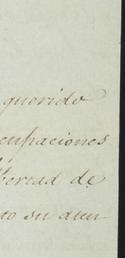 querido
cupaciones
bertad de
no su aten